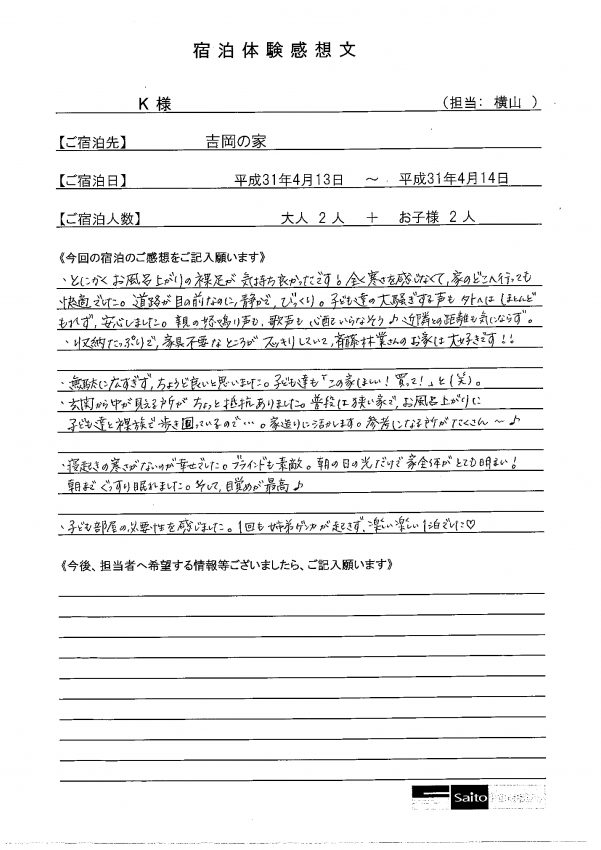 宿泊体験感想文
K 様 （担当： 横山 ）
【ご宿泊先】 吉岡の家
【ご宿泊日】 平成31年4月13日 ～ 平成31年4月14日
【ご宿泊人数】 大人 2 人 ＋ お子様 2 人
《今回の宿泊のご感想をご記入願います》
・とにかくお風呂上がりの裸足が気持ち良かったです！全く寒さを感じなくて、家のどこへ行っても
快適でした。道路が目の前なのに、静かで、びっくり。子ども達の大騒ぎする声も外へはほとんど
もれず、安心しました。親の怒鳴り声も、歌声も心配いらなそう♪近隣との距離も気にならず。
・収納たっぷりで、家具不要なところがスッキリしていて、斉藤林業さんのお家は大好きです！！
・無駄に広すぎず、ちょうど良いと思いました。子ども達も「この家ほしい！買って！」と(笑)。
・玄関から中が見える所がちょっと抵抗ありました。普段は狭い家で、お風呂上がりに
子ども達と裸族で歩き回っているので…。家造りに活かします。参考になる所がたくさん～♪
・寝起きの寒さがないのが幸せでした。ブラインドも素敵。朝の日の光だけで家全体がとても明るい！
朝までぐっすり眠れました。そして、目覚めが最高♪
・子ども部屋の必要性を感じました。1回も姉弟ゲンカが起きず、楽しい楽しい1泊でした♡
《今後、担当者へ希望する情報等ございましたら、ご記入願います》
Saito